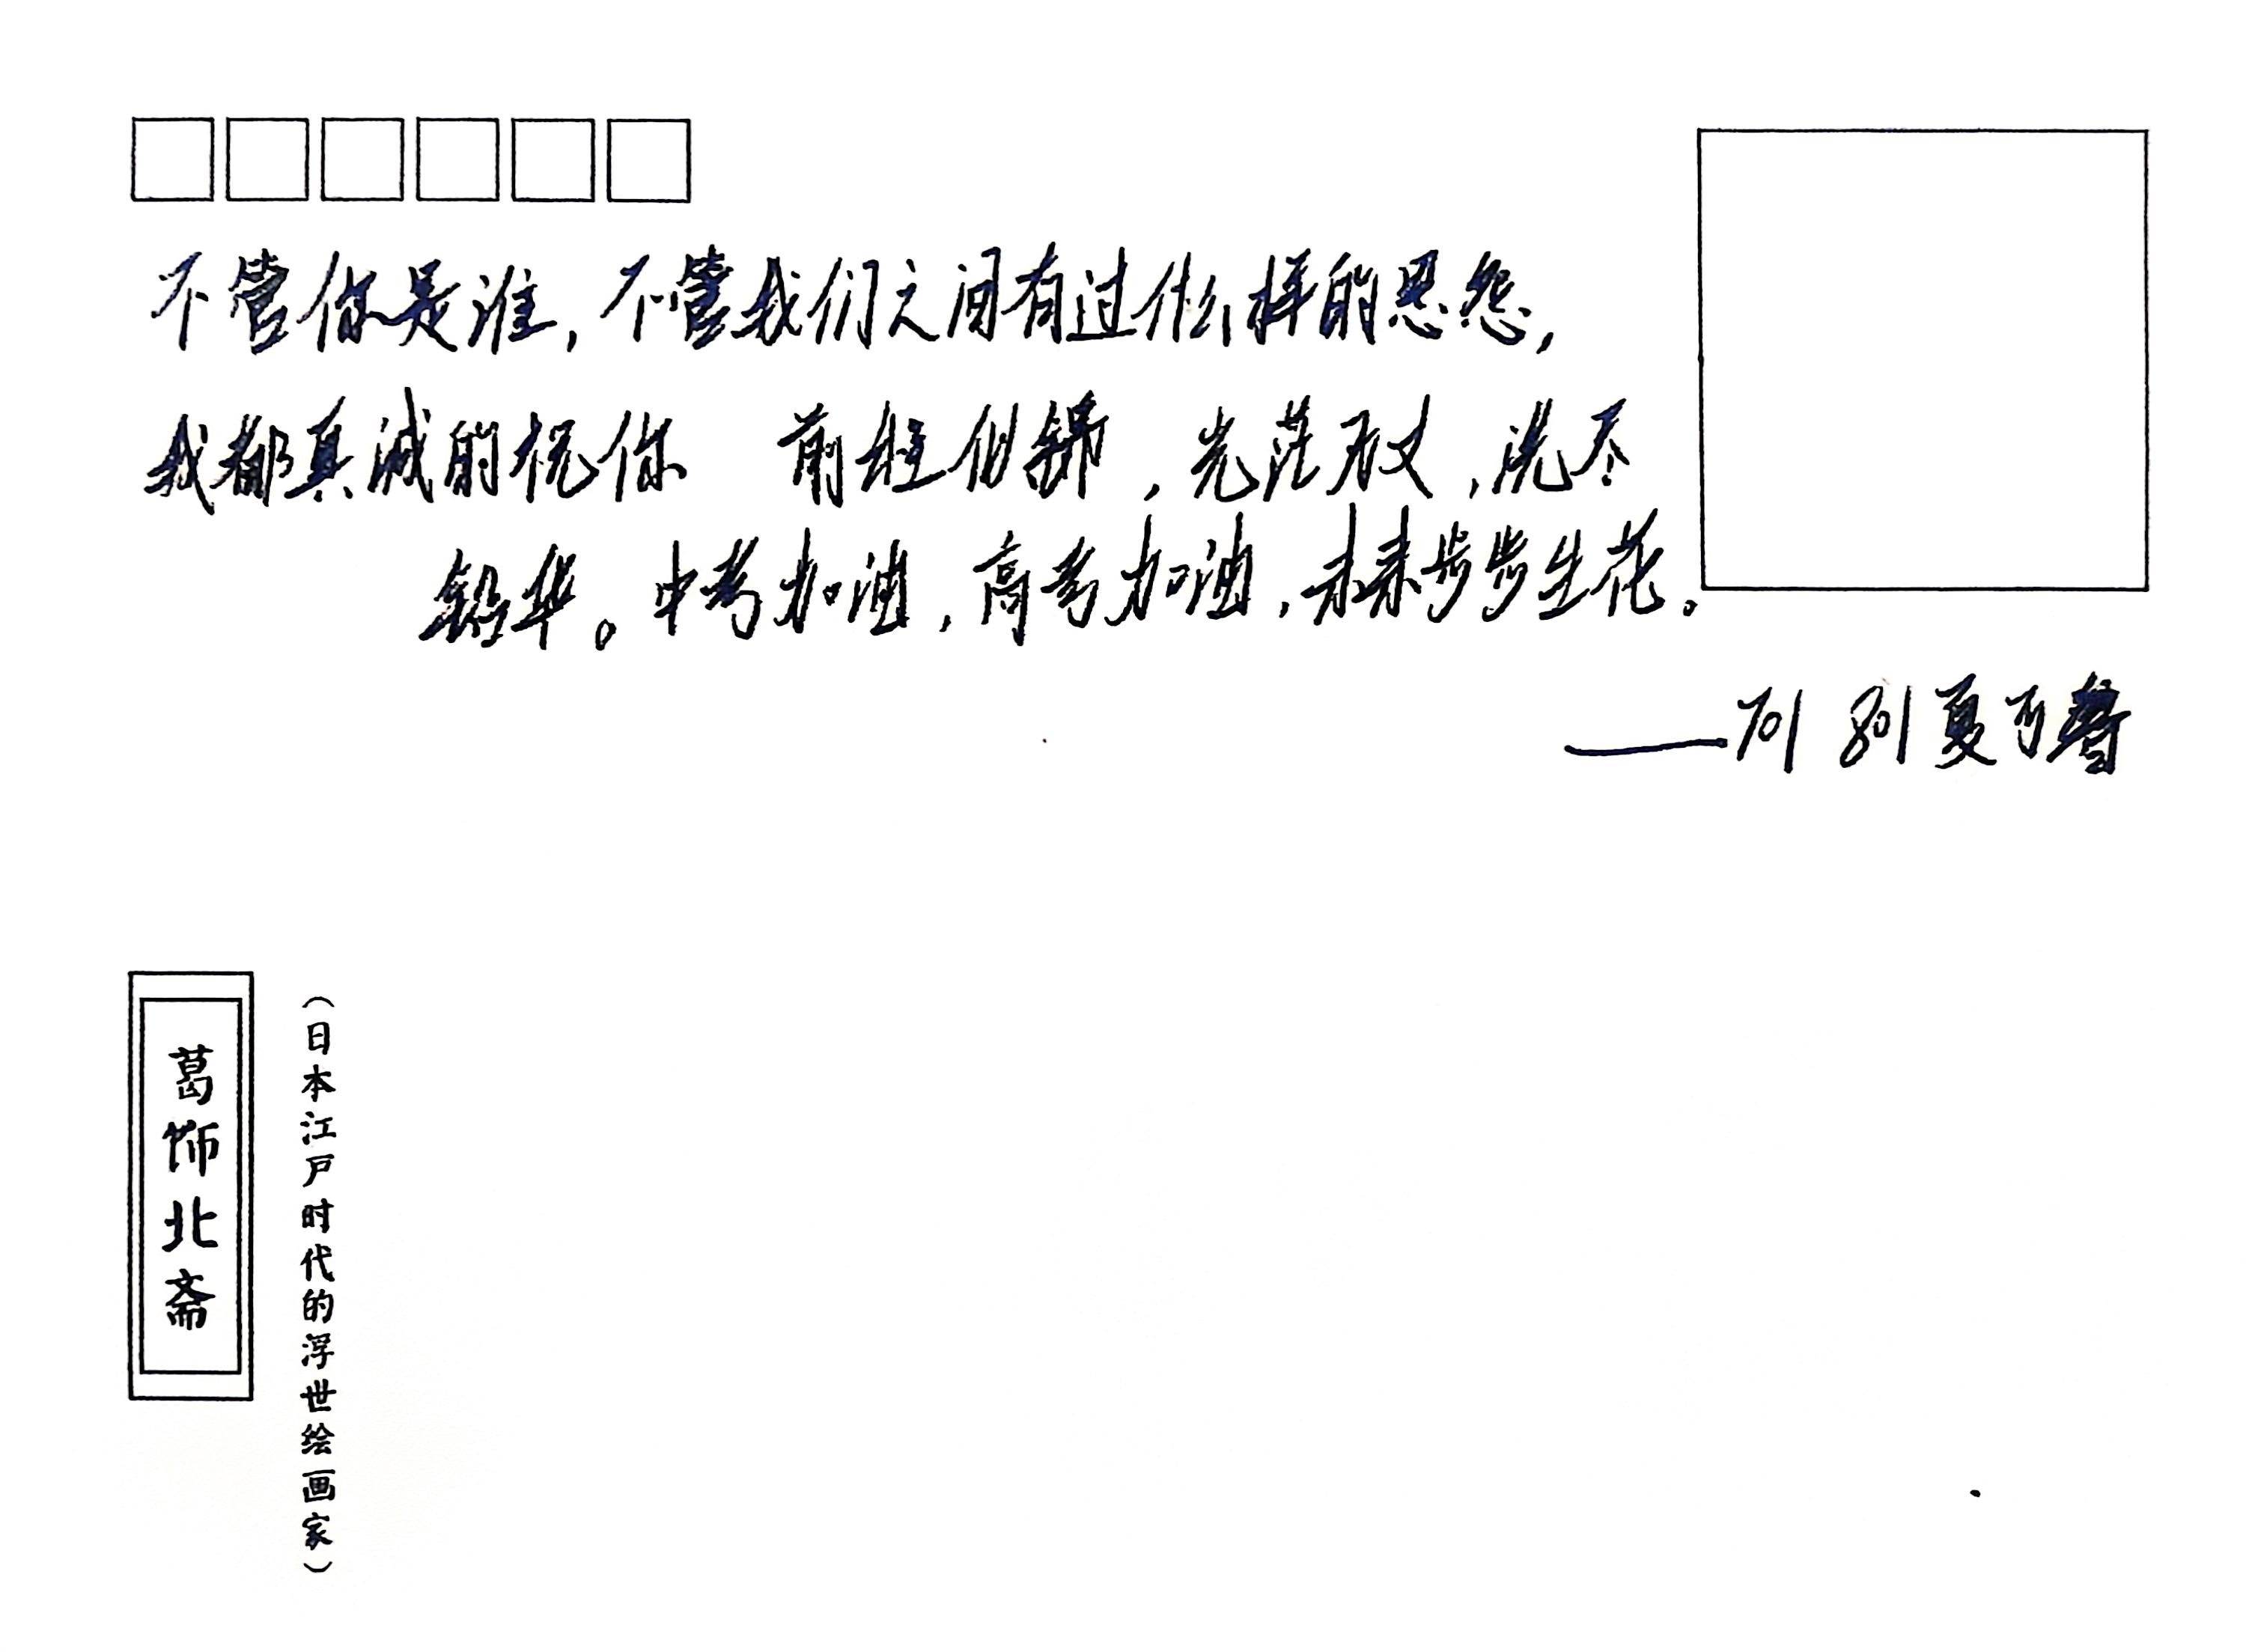 不管你是谁，不管我们之间有过什么样的恩怨，
我都真诚的祝你 前程似锦，光芒万丈，洗尽
铅华。中考加油，高考加油，未来步步生花。
——701 801 夏可馨
葛饰北斋
（日本江戸时代的浮世绘画家）